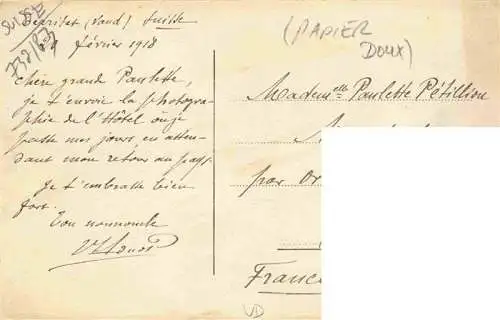 SUISSE
738/83
Territet (Vaud) Suisse
février 1918
Chère grande Paulette,
je t'envoie la photogra-
phie de l'Hôtel où je
passe mes jours, en atten-
dant mon retour au pays.
Je t'embrasse bien
fort.
Ton
(PAPIER
DOUX)
Mademelle Paulette Pétillion
par
France
VD